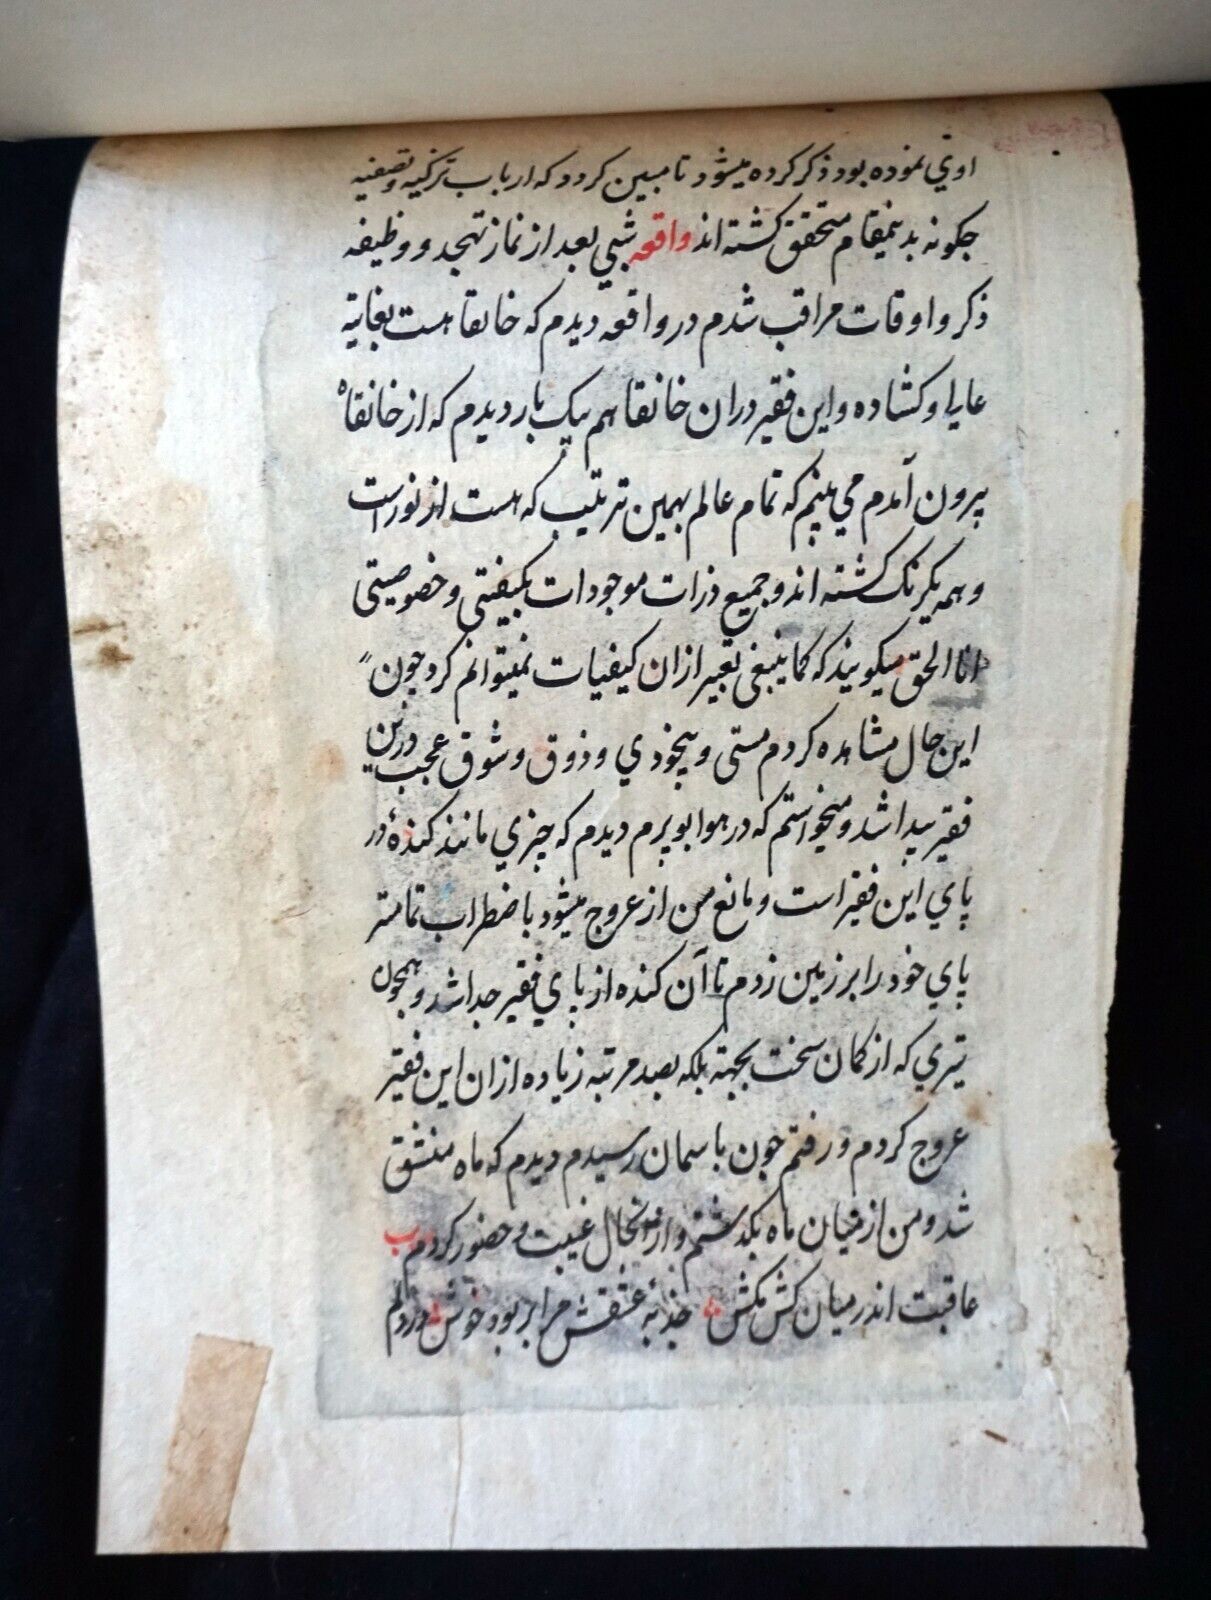 اوتی نموده بود ذکر کرده میشود تا مبین کردد که ارباب تزکیه و تصفیه
جکونه بدینمقام متحقق کشته اند واقعه شبی بعد از نماز تهجد و وظیفه
ذکر و اوقات مراقب شدم در واقعه دیدم که خانقاهست بغایة
عالی و کشاده و این فقیر دران خانقاهم بیک بار دیدم که از خانقاه
بیرون آمدم می بینم که تمام عالم بهمین ترتیب که هست از نور است
و همه یکرنک کشته اند و جمیع ذرات موجودات بکیفیتی و خصوصیتی
انا الحق میکویند که کما ینبغی تعبیر ازان کیفیات نمیتوانم کرد جون
این حال مشاهده کردم مستی و بیخودی و ذوق و شوق عجب درین
فقیر پیدا شد و میخواستم که در هوا بپرم دیدم که چیزی مانند کنده در
پای این فقیر است و مانع من از عروج میشود با ضطراب تمامتر
پای خود را بر زمین زدم تا آن کنده از پای فقیر جدا شد و همجون
تیری که از کمان سخت بجهد بلکه بصد مرتبه زیاده ازان این فقیر
عروج کردم و رفتم جون باسمان رسیدم دیدم که ماه منشق
شد و من از میان ماه بکذشتم و ازانحال غیبت و حضور کردم ب
عاقبت اندر میان کش مکش جذبه عشقش مرا بربود خوش